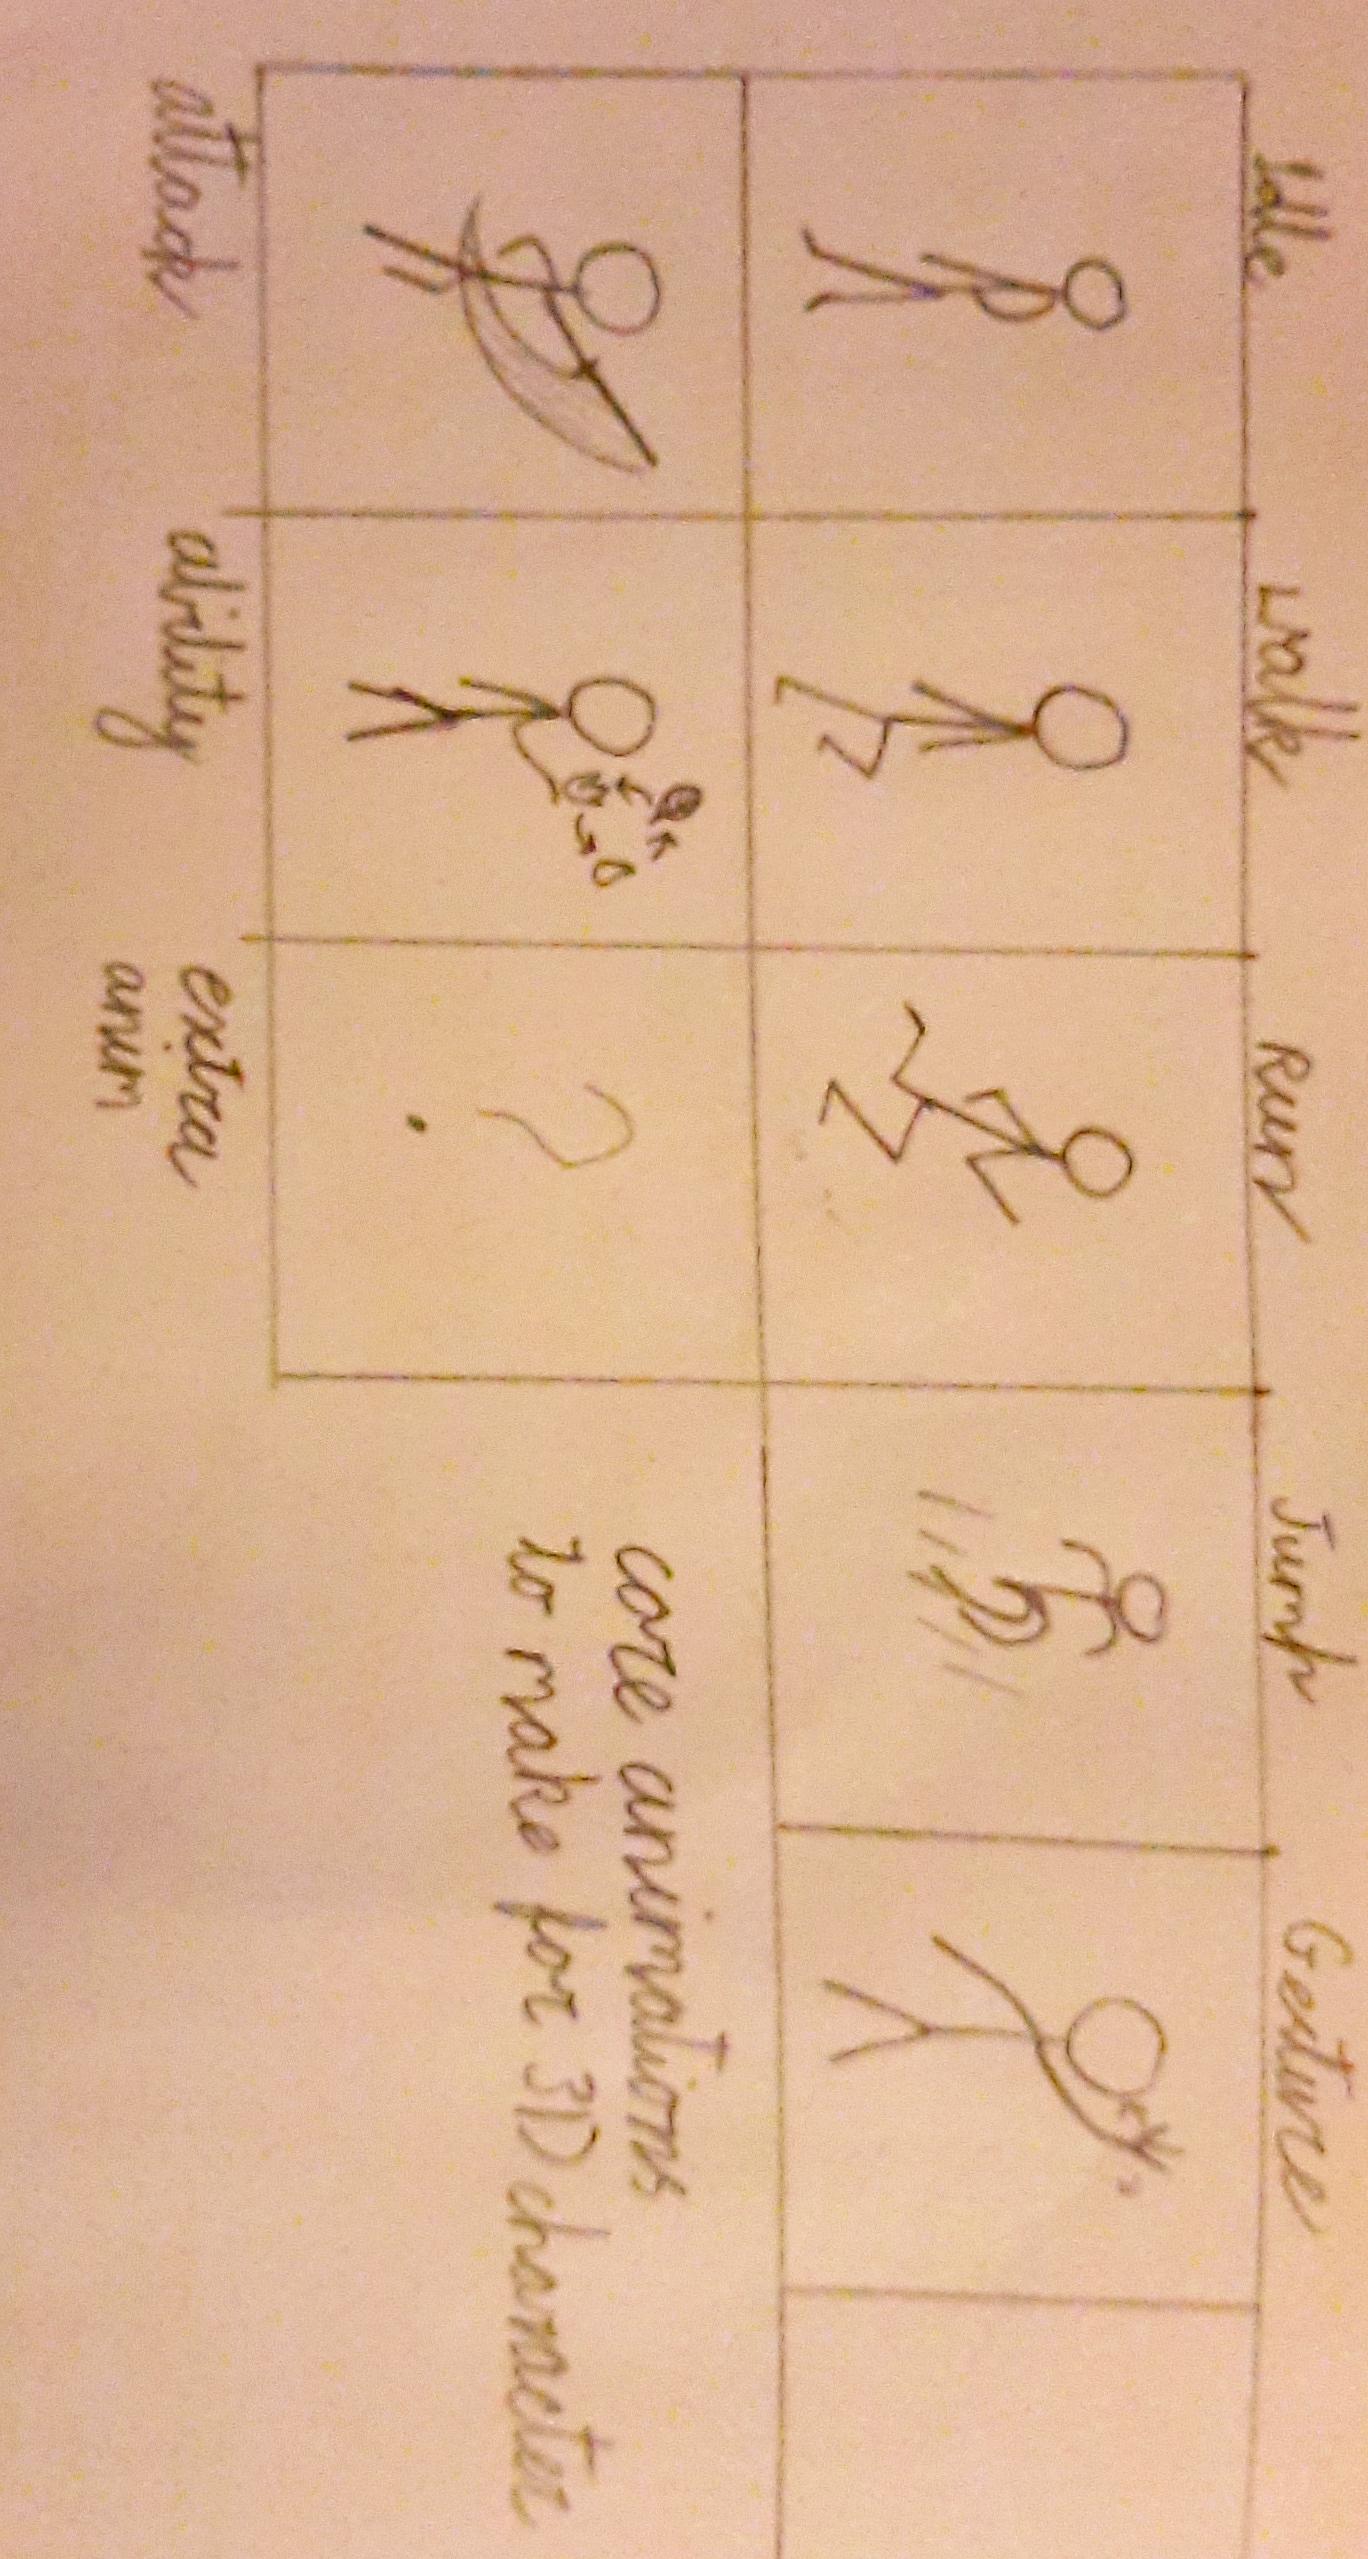 Idle
Walk
Run
Jump
Gesture
attack
ability
extra
anim
?
core animations
to make for 3D character